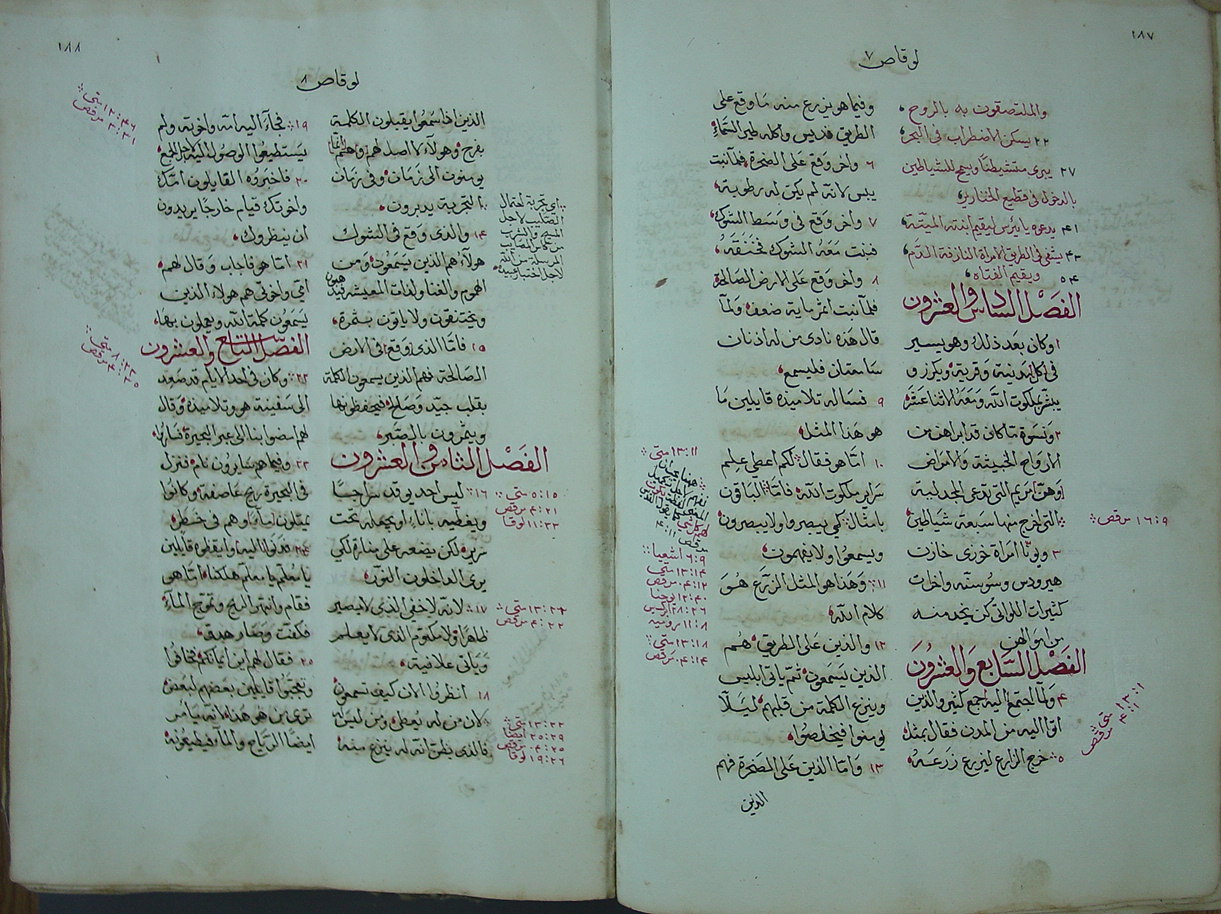 ١٨٧
لوقاص ٧
والملتصقون به بالروح
٢٢ يسكن الاضطراب في البحر
٢٧ يبرى متشيطنا ويسمح للشياطين
بالدخول في قطيع الخنازير
٤١ يدعوه يايرس ليقيم ابنته الميتة
٤٣ يشفي في الطريق الامراة النازفة الدم
٥٤ ويقيم الفتاة
الفصل السادس والعشرون
١ وكان بعد ذلك وهو يسير
في كل مدينة وقرية ويكرز و
يبشر بملكوت الله ومعه الاثنا عشر
٢ ونسوة ما كان قد ابراهن من
الارواح الخبيثة والامراض
وهن مريم التي تدعى المجدلية
التي اخرج منها سبعة شياطين
٣ ويونا امراة خوزى خازن
هيرودس وسوسنه واخرات
كثيرات اللواتي كن يخدمنه
من اموالهن
الفصل السابع والعشرون
٤ ولما اجتمع اليه جمع كثير والذين
اتوا اليه من المدن فقال بمثل
٥ خرج الزارع ليزرع زرعه
١٦:٩ مرقص
١٣:١ متى
٤:١ مرقص
وفيما هو يزرع منه ما وقع على
الطريق فديس واكله طير السماء
٦ واخر وقع على الصخرة فلما نبت
يبس لانه لم يكن له رطوبة
٧ واخر وقع في وسط الشوك
فنبت معه الشوك فخنقه
٨ واخر وقع على الارض الصالحة
فلما نبت اثمر ماية ضعف ولما
قال هذه نادى من له اذنان
سامعتان فليسمع
٩ فساله تلاميذه قايلين ما
هو هذا المثل
١٠ اما هو فقال لكم اعطي علم
سراير ملكوت الله فاما الباقون
بامثال كي يبصروا ولا يبصرون
ويسمعوا ولا يفهمون
١١ وهذا هو المثل الزرع هو
كلام الله
١٢ والذين على الطريق هم
الذين يسمعون ثم ياتي ابليس
وينزع الكلمة من قلبهم ليلا
يومنوا فيخلصوا
١٣ واما الذين على الصخرة فهم
الذين
١٣:١١ متى
٦:٩ اشعيا
١٣:١٤ متى
٤:١٢ مرقص
١٢:٤٠ يوحنا
٢٨:٢٦ ابركسيس
١١:٨ رومية
١٣:١٨ متى
٤:١٤ مرقص
١٨٨
لوقاص ٨
الذين اذا سمعوا يقبلون الكلمة
بفرح وهولاء لا اصل لهم وهم انما
يومنون الى زمان وفي زمان
التجربة يدبرون
١٤ والذي وقع في الشوك
هولاء هم الذين يسمعون ومن
الهموم والغنا ولذات المعيشة
ويختنقون ولا ياتون بثمرة
١٥ فاما الذي وقع في الارض
الصالحة فهم الذين يسمعون الكلمة
بقلب جيد وصالح فيحفظونها
ويثمرون بالصبر
الفصل الثامن والعشرون
١٦ ليس احد يوقد سراجا
ويغطيه باناء او يجعله تحت
سرير لكن يضعه على منارة لكي
يرى الداخلون النور
١٧ لانه لا خفي الذي لا يصير
ظاهرا ولا مكتوم الذي لا يعلم
وياتي علانية
١٨ انظروا الان كيف تسمعون
لان من له يعطى ومن ليس له
فالذي يظن انه له ينزع منه
٥:١٥ متى
٤:٢١ مرقص
١١:٣٣ لوقا
٤:٢٢ مرقص
٤:٢٥ مرقص
١٩:٢٦ لوقا
١٩ فجاء اليه امه واخوته ولم
يستطيعوا الوصول اليه لاجل الجمع
٢٠ فاخبروه القايلون امك
واخوتك قيام خارجا يريدون
ان ينظروك
٢١ اما هو فاجاب وقال لهم
امي واخوتي هم هولاء الذين
يسمعون كلمة الله ويعملون بها
الفصل التاسع والعشرون
٢٢ وكان في احد الايام قد صعد
الى سفينة هو وتلاميذه وقال
لهم امضوا بنا الى عبر البحيرة فساروا
٢٣ وفيما هم سايرون نام فنزل
في البحيرة ريح عاصفة وكانوا
يمتلون ماء وهم في خطر
٢٤ فدنوا اليه وايقظوه قايلين
يا معلم يا معلم هلكنا اما هو
فقام وانتهر الريح وتموج الماء
فكفت وصار هدو
٢٥ فقال لهم اين ايمانكم فخافوا
وتعجبوا قايلين بعضهم لبعض
ترى من هو هذا انه يامر
ايضا الرياح والماء فيطيعونه
١٢:٤٦ متى
٣:٣١ مرقص
٨:٢٣ متى
٤:٣٥ مرقص